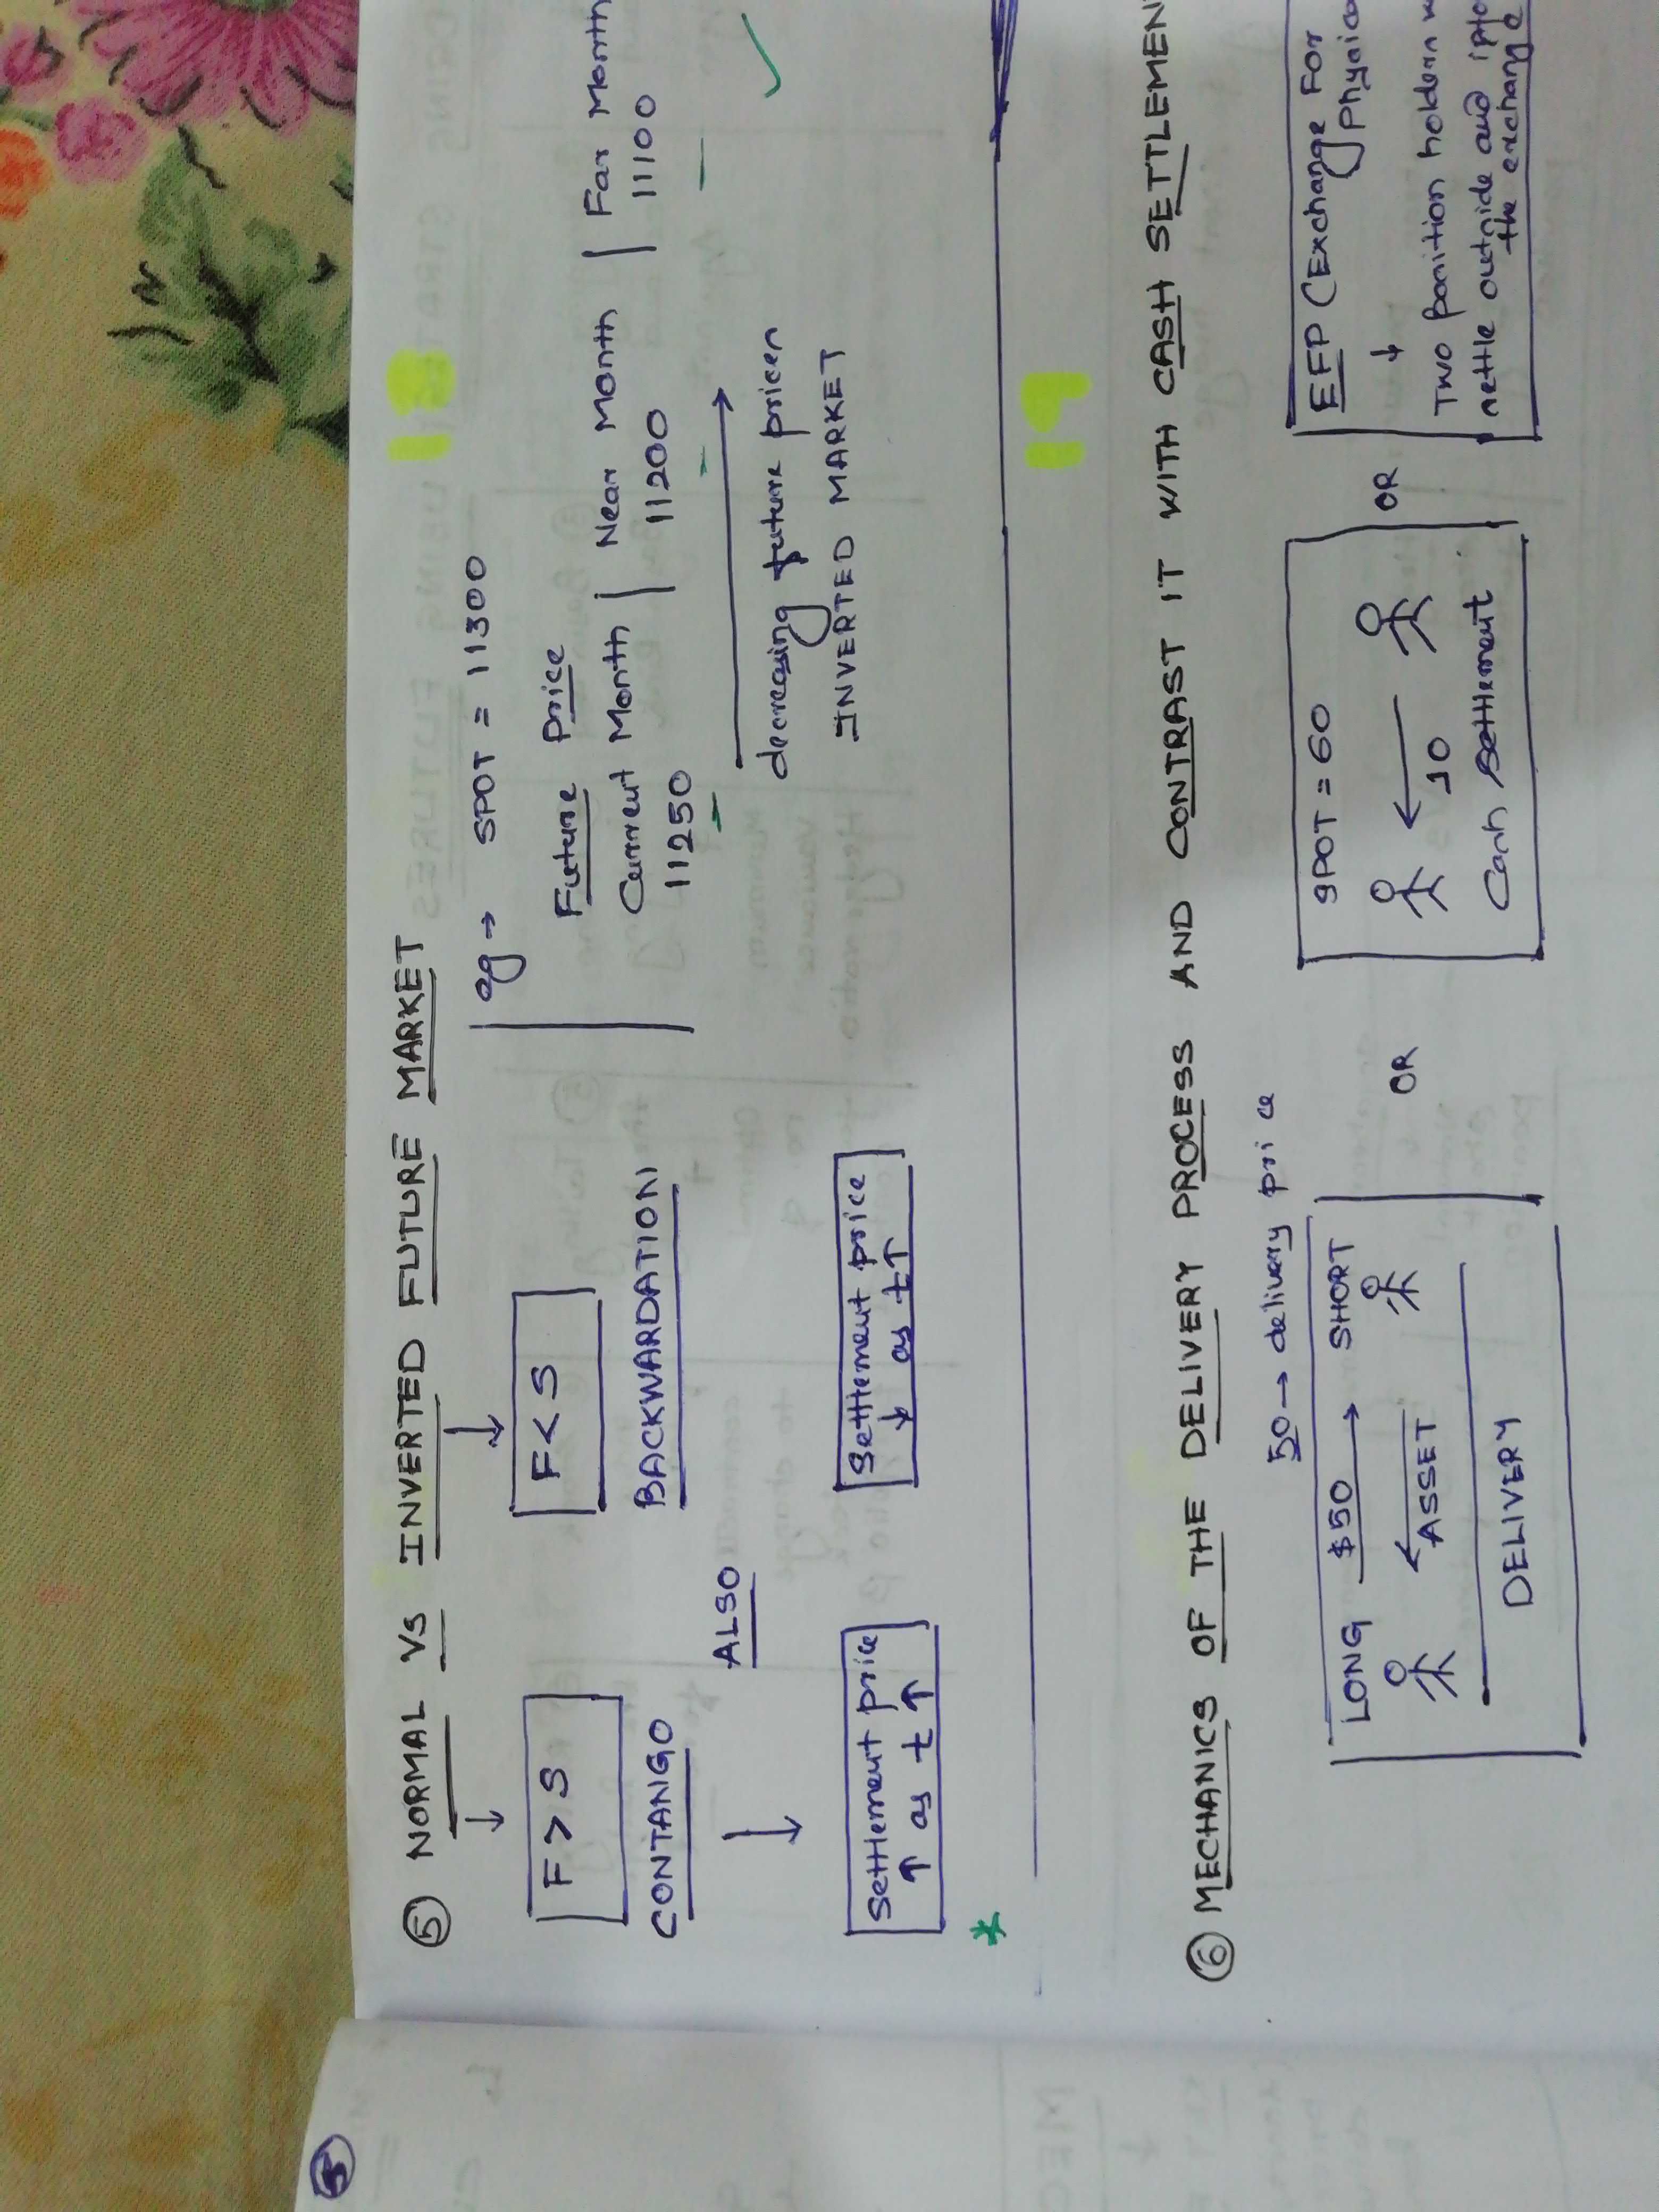 5
⑤ NORMAL Vs INVERTED FUTURE MARKET
↓ ↓
F > S
F < S
CONTANGO
BACKWARDATION
ALSO
↓
Settlement price
↑ as t ↑
Settlement price
↓ as t ↑
eg → SPOT = 11300
Future Price
Current Month | Near Month | Far Month
11250 11200 11100
decreasing future prices
INVERTED MARKET
⑥ MECHANICS OF THE DELIVERY PROCESS AND CONTRAST IT WITH CASH SETTLEMEN
50 → delivery price
LONG $50 → SHORT
← ASSET
DELIVERY
OR
SPOT = 60
←
10
Cash Settlement
OR
EFP (Exchange For
Physica
↓
Two position holders
settle outside and
the exchange